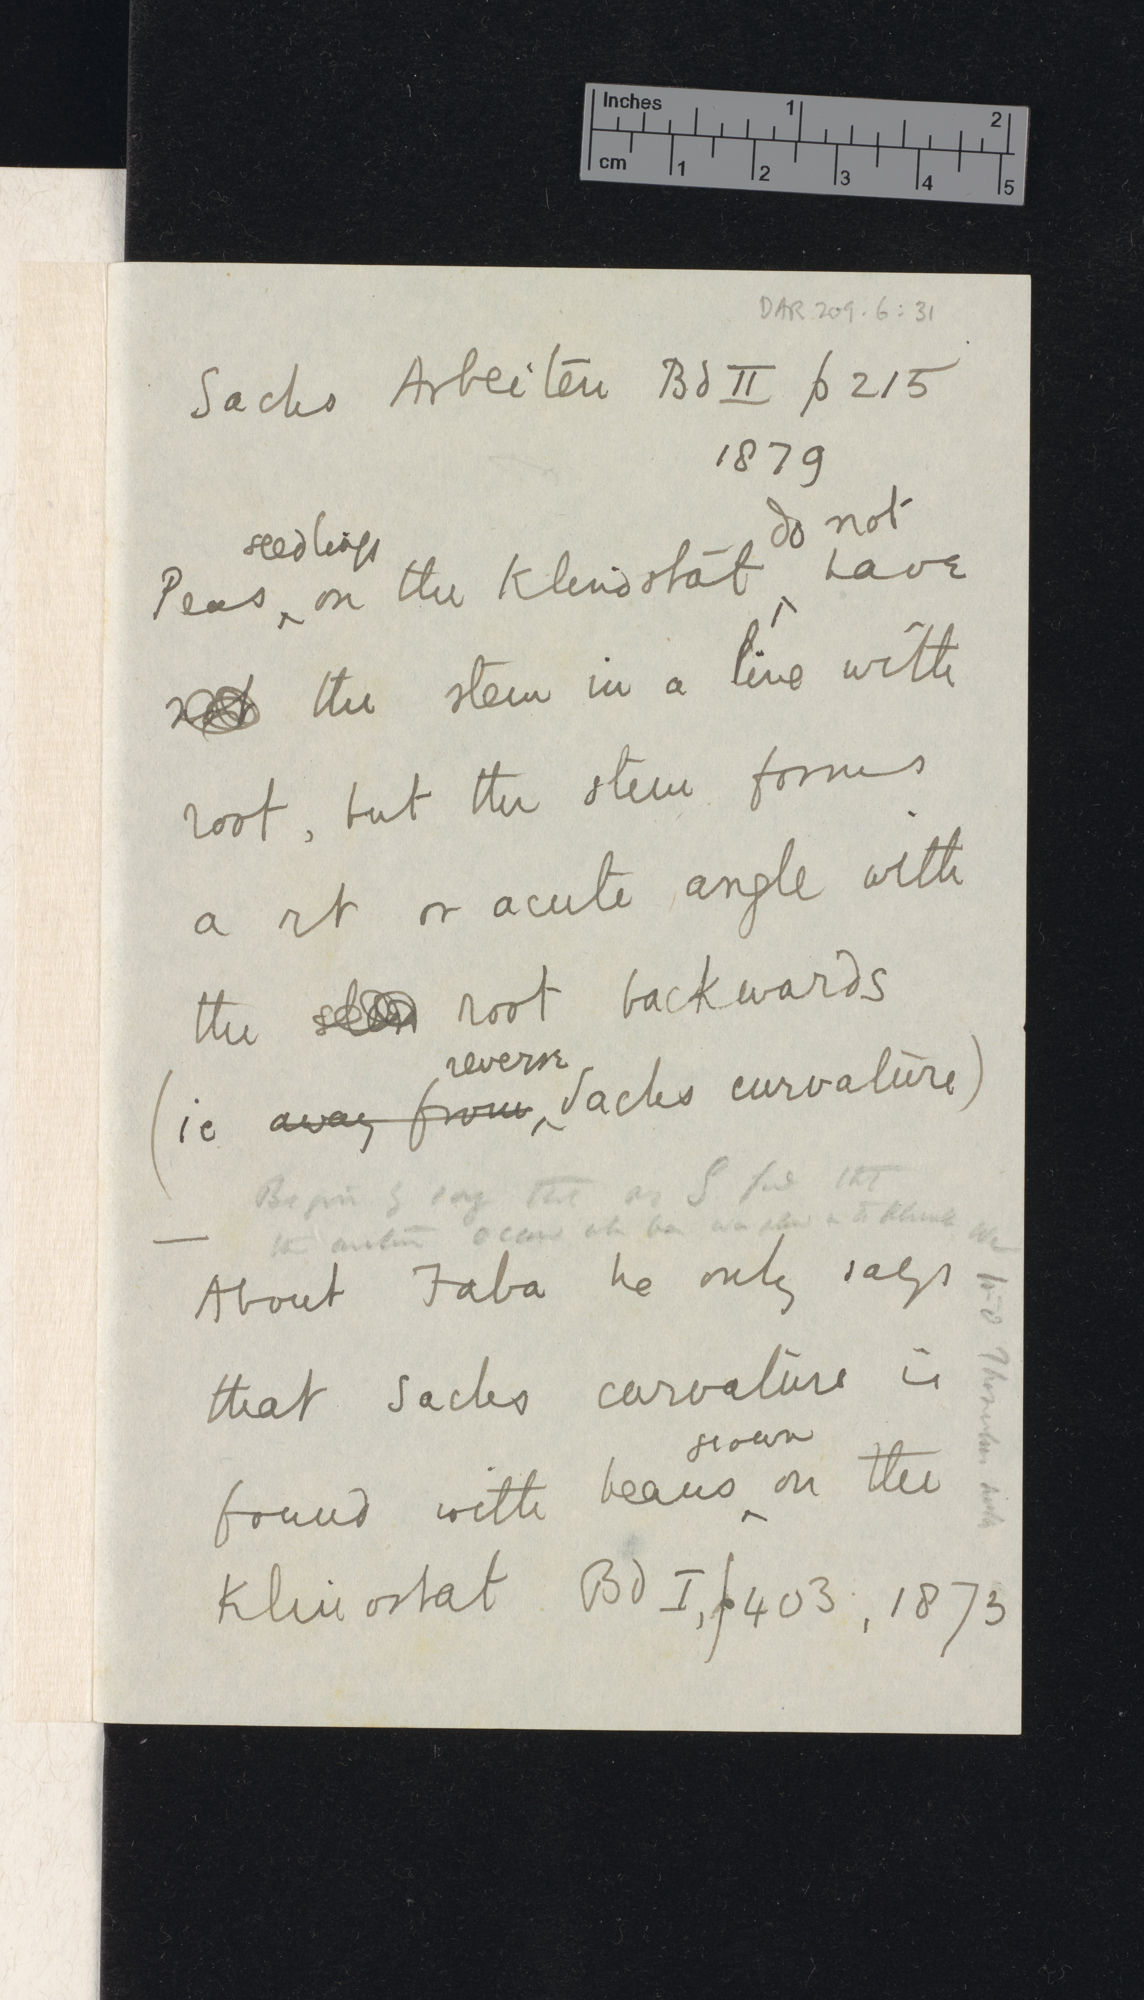 Inches 1 2
cm 1 2 3 4 5
DAR 209.6:31
Sachs Arbeiten Bd II p 215
1879
seedlings do not
Peas ‸ on the Klinostat ‸ have
not the stem in a line with
root, but the stem forms
a rt or acute angle with
the stem root backwards
reverse
(ie away from ‸ Sachs curvature)
Begin by say that as S find that
the occurs
About Faba he only says
that Sachs curvature is
grown
found with beans ‸ on the
Klinostat Bd I, p 403, 1873